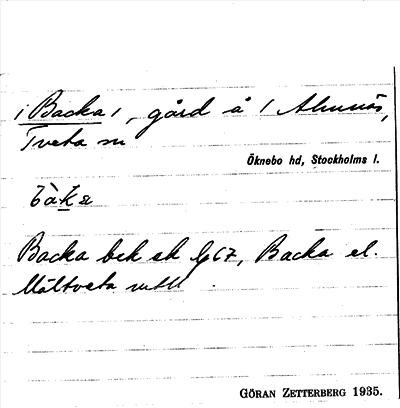 / Backa /, gård å / Almnäs,
Tveta sn
Öknebo hd, Stockholms l.
Backa bek sk 67, Backa el.
Måltveta
GÖRAN ZETTERBERG 1935.